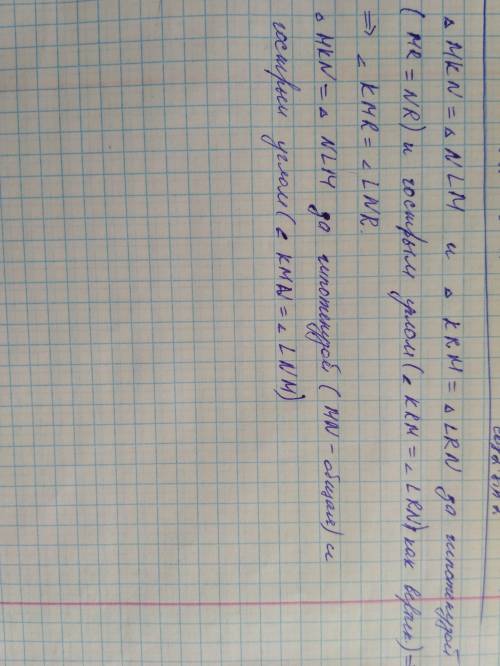 △ MKN = △ NLM и △ KRM = △ LRN за гипотенузой
(MR = NR) и гострым углом (∠ KRM = ∠ LRN, как вертик) =
=> ∠ KMR = ∠ LNR.
△ MKN = △ NLM за гипотенузой (MN - общая) и
гострым углом (∠ KMN = ∠ LNM)